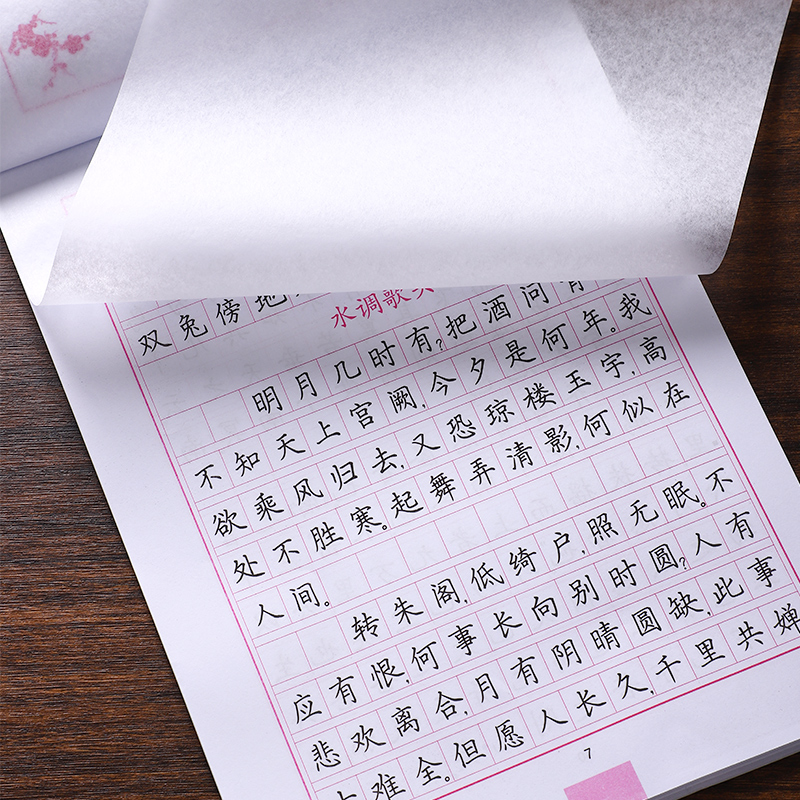 双兔傍地
水调歌
明月几时有?把酒问
不知天上宫阙,今夕是何年。我
欲乘风归去,又恐琼楼玉宇,高
处不胜寒。起舞弄清影,何似在
人间。
转朱阁,低绮户,照无眠。不
应有恨,何事长向别时圆?人有
悲欢离合,月有阴晴圆缺,此事
难全。但愿人长久,千里共婵
7